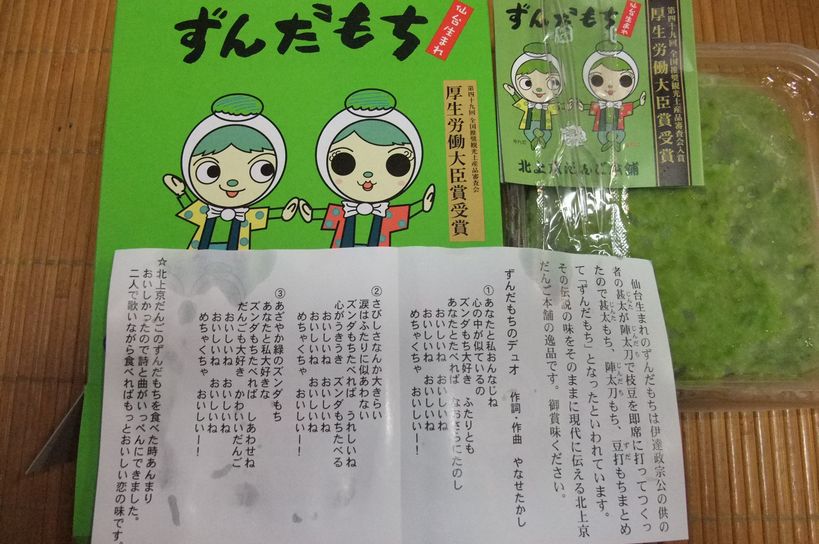 ずんだもち
仙台生まれ
第四十九回 全国推奨観光土産品審査会
厚生労働大臣賞受賞
ずんだもち
仙台生まれ
第四十九回 全国推奨観光土産品審査会入賞
厚生労働大臣賞受賞
北上京だんご本舗
仙台生まれのずんだもちは伊達政宗公の供の
者の甚太が陣太刀で枝豆を即席に打ってつくっ
たので甚太もち、陣太刀もち、豆打もちまとめ
て「ずんだもち」となったといわれています。
その伝説の味をそのままに現代に伝える北上京
だんご本舗の逸品です。御賞味ください。
ずんだもちのデュオ 作詞・作曲 やなせたかし
①あなたと私おんなじね
心の中が似ているの
ズンダもち大好き ふたりとも
あなたとたべれば なおさらにたのし
おいしいね おいしいね
めちゃくちゃ おいしいー!
②さびしさなんか大きらい
涙はふたりに似あわない
ズンダもちたべれば うれしいね
心がうきうき ズンダもちたべる
おいしいね おいしいね
おいしいね おいしいね
めちゃくちゃ おいしいー!
③あざやか緑のズンダもち
あなたと私大好きな
ズンダもちたべれば しあわせね
だんごも大好き かわいいだんご
おいしいね おいしいね
おいしいね おいしいね
めちゃくちゃ おいしいー!
☆北上京だんごのずんだもちを食べた時あんまり
おいしかったので詩と曲がいっぺんにできました。
二人で歌いながら食べればもっとおいしい恋の味です。